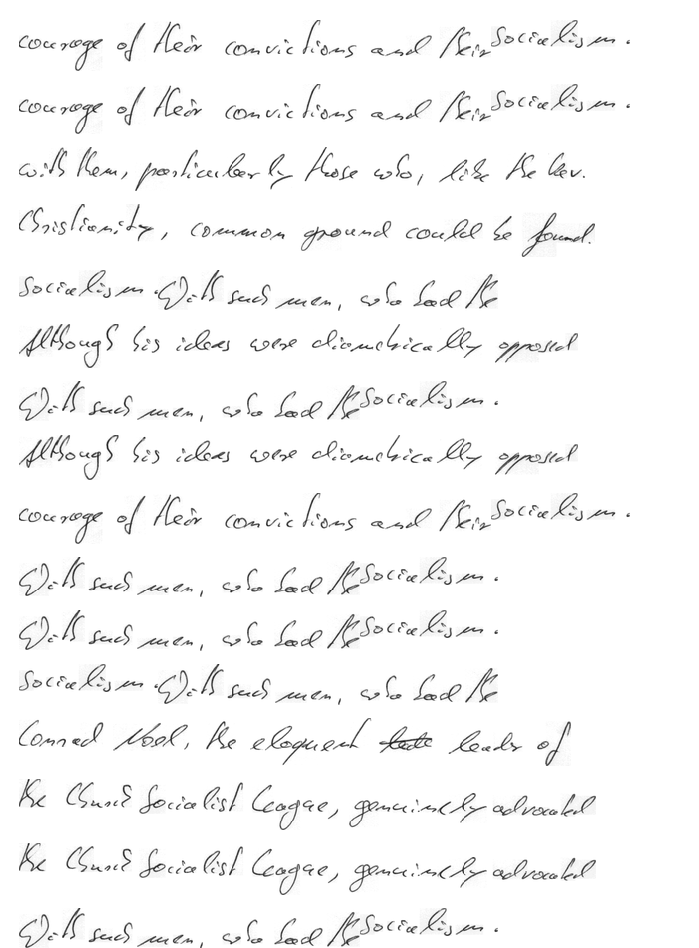 courage of their convictions and their Socialism.
courage of their convictions and their Socialism.
with them, particularly those who, like the Rev.
Christianity, common ground could be found.
Socialism. With such men, who had the
Although his ideas were diametrically opposed
With such men, who had the Socialism.
Although his ideas were diametrically opposed
courage of their convictions and their Socialism.
With such men, who had the Socialism.
With such men, who had the Socialism.
Socialism. With such men, who had the
Conrad Noel, the eloquent leader of
the Church Socialist League, genuinely advocated
the Church Socialist League, genuinely advocated
With such men, who had the Socialism.